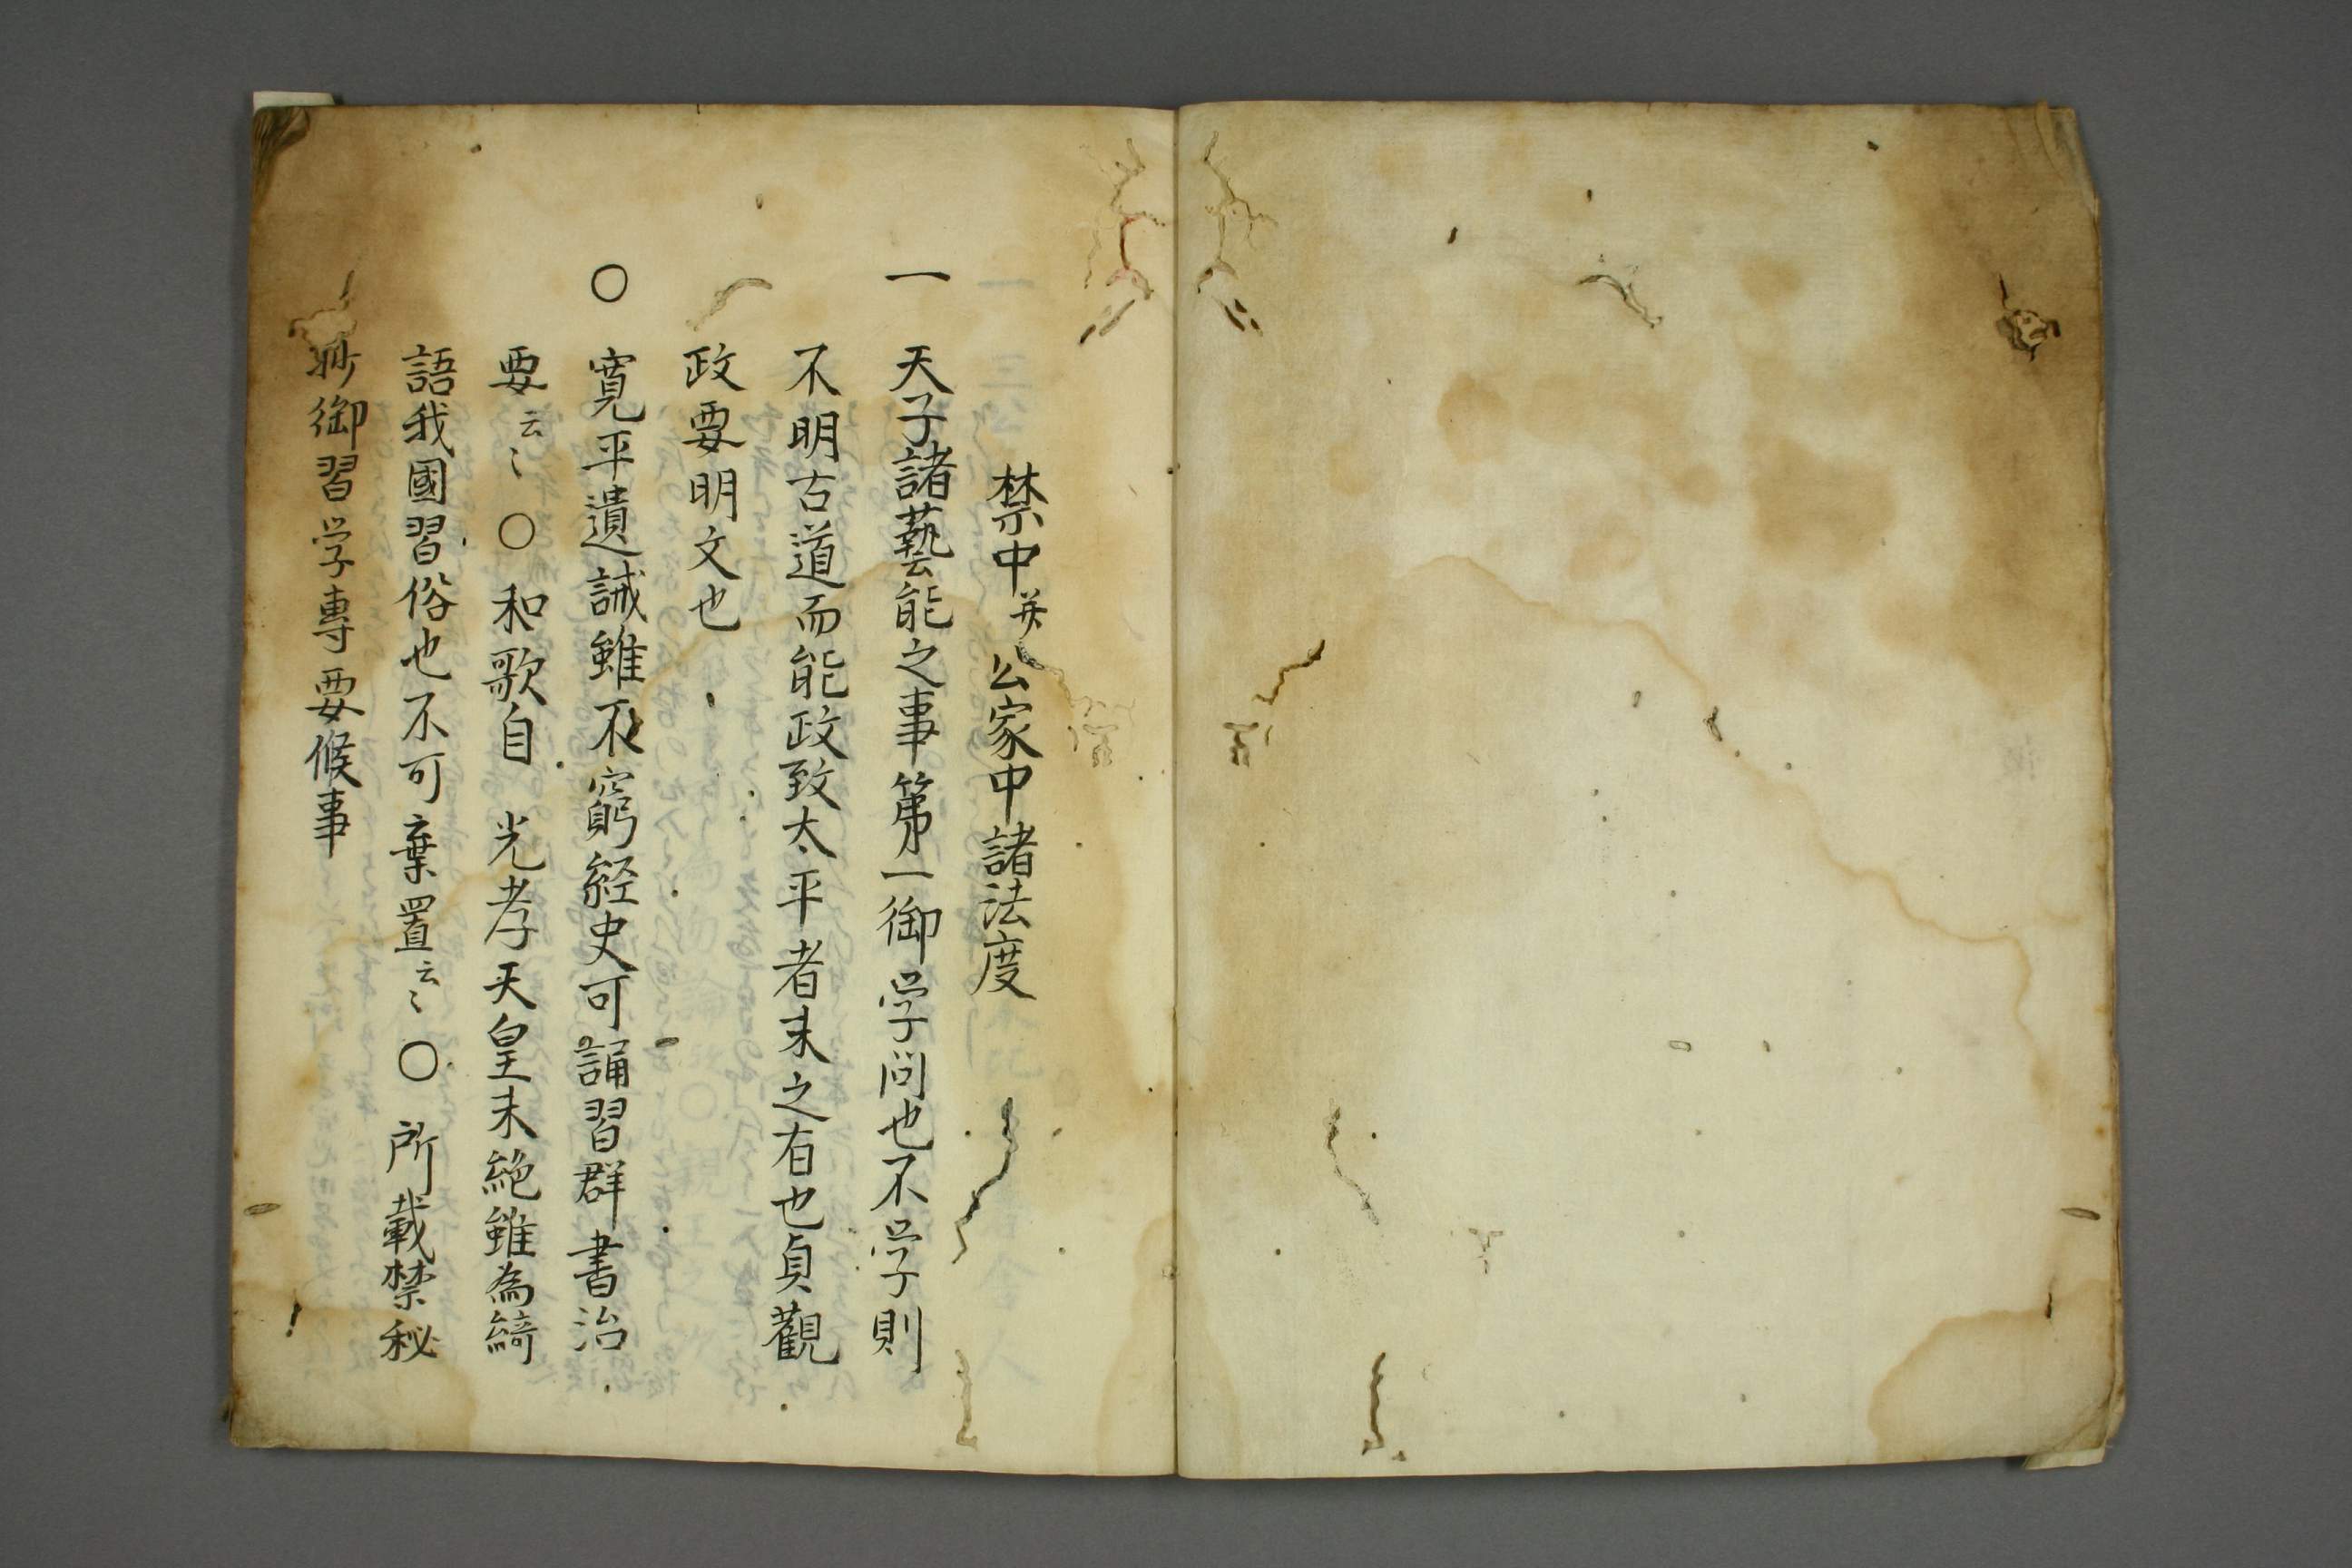 禁中并公家中諸法度
一 天子諸藝能之事第一御学问也不学則
不明古道而能政致太平者未之有也貞觀
政要明文也
○ 寛平遺誡雖不窮経史可誦習群書治
要云〻○和歌自 光孝天皇未絶雖為綺
語我國習俗也不可棄置云〻○所載禁秘
抄御習学專要候事